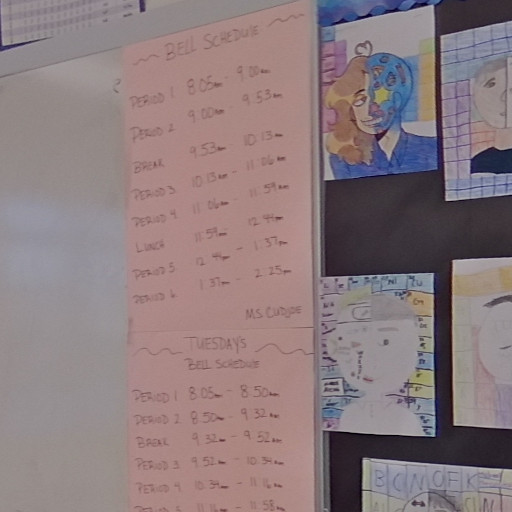 BELL SCHEDULE
PERIOD 1 8:05am - 9:00am
PERIOD 2 9:00am - 9:53am
BREAK 9:53am - 10:13am
PERIOD 3 10:13am - 11:06am
PERIOD 4 11:06am - 11:59am
LUNCH 11:59am - 12:44pm
PERIOD 5 12:44pm - 1:37pm
PERIOD 6 1:37pm - 2:25pm
MS. CUDJOE
TUESDAYS
BELL SCHEDULE
PERIOD 1 8:05am - 8:50am
PERIOD 2 8:50am - 9:32am
BREAK 9:32am - 9:52am
PERIOD 3 9:52am - 10:34am
PERIOD 4 10:34am - 11:16am
PERIOD 5 11:16am - 11:58am